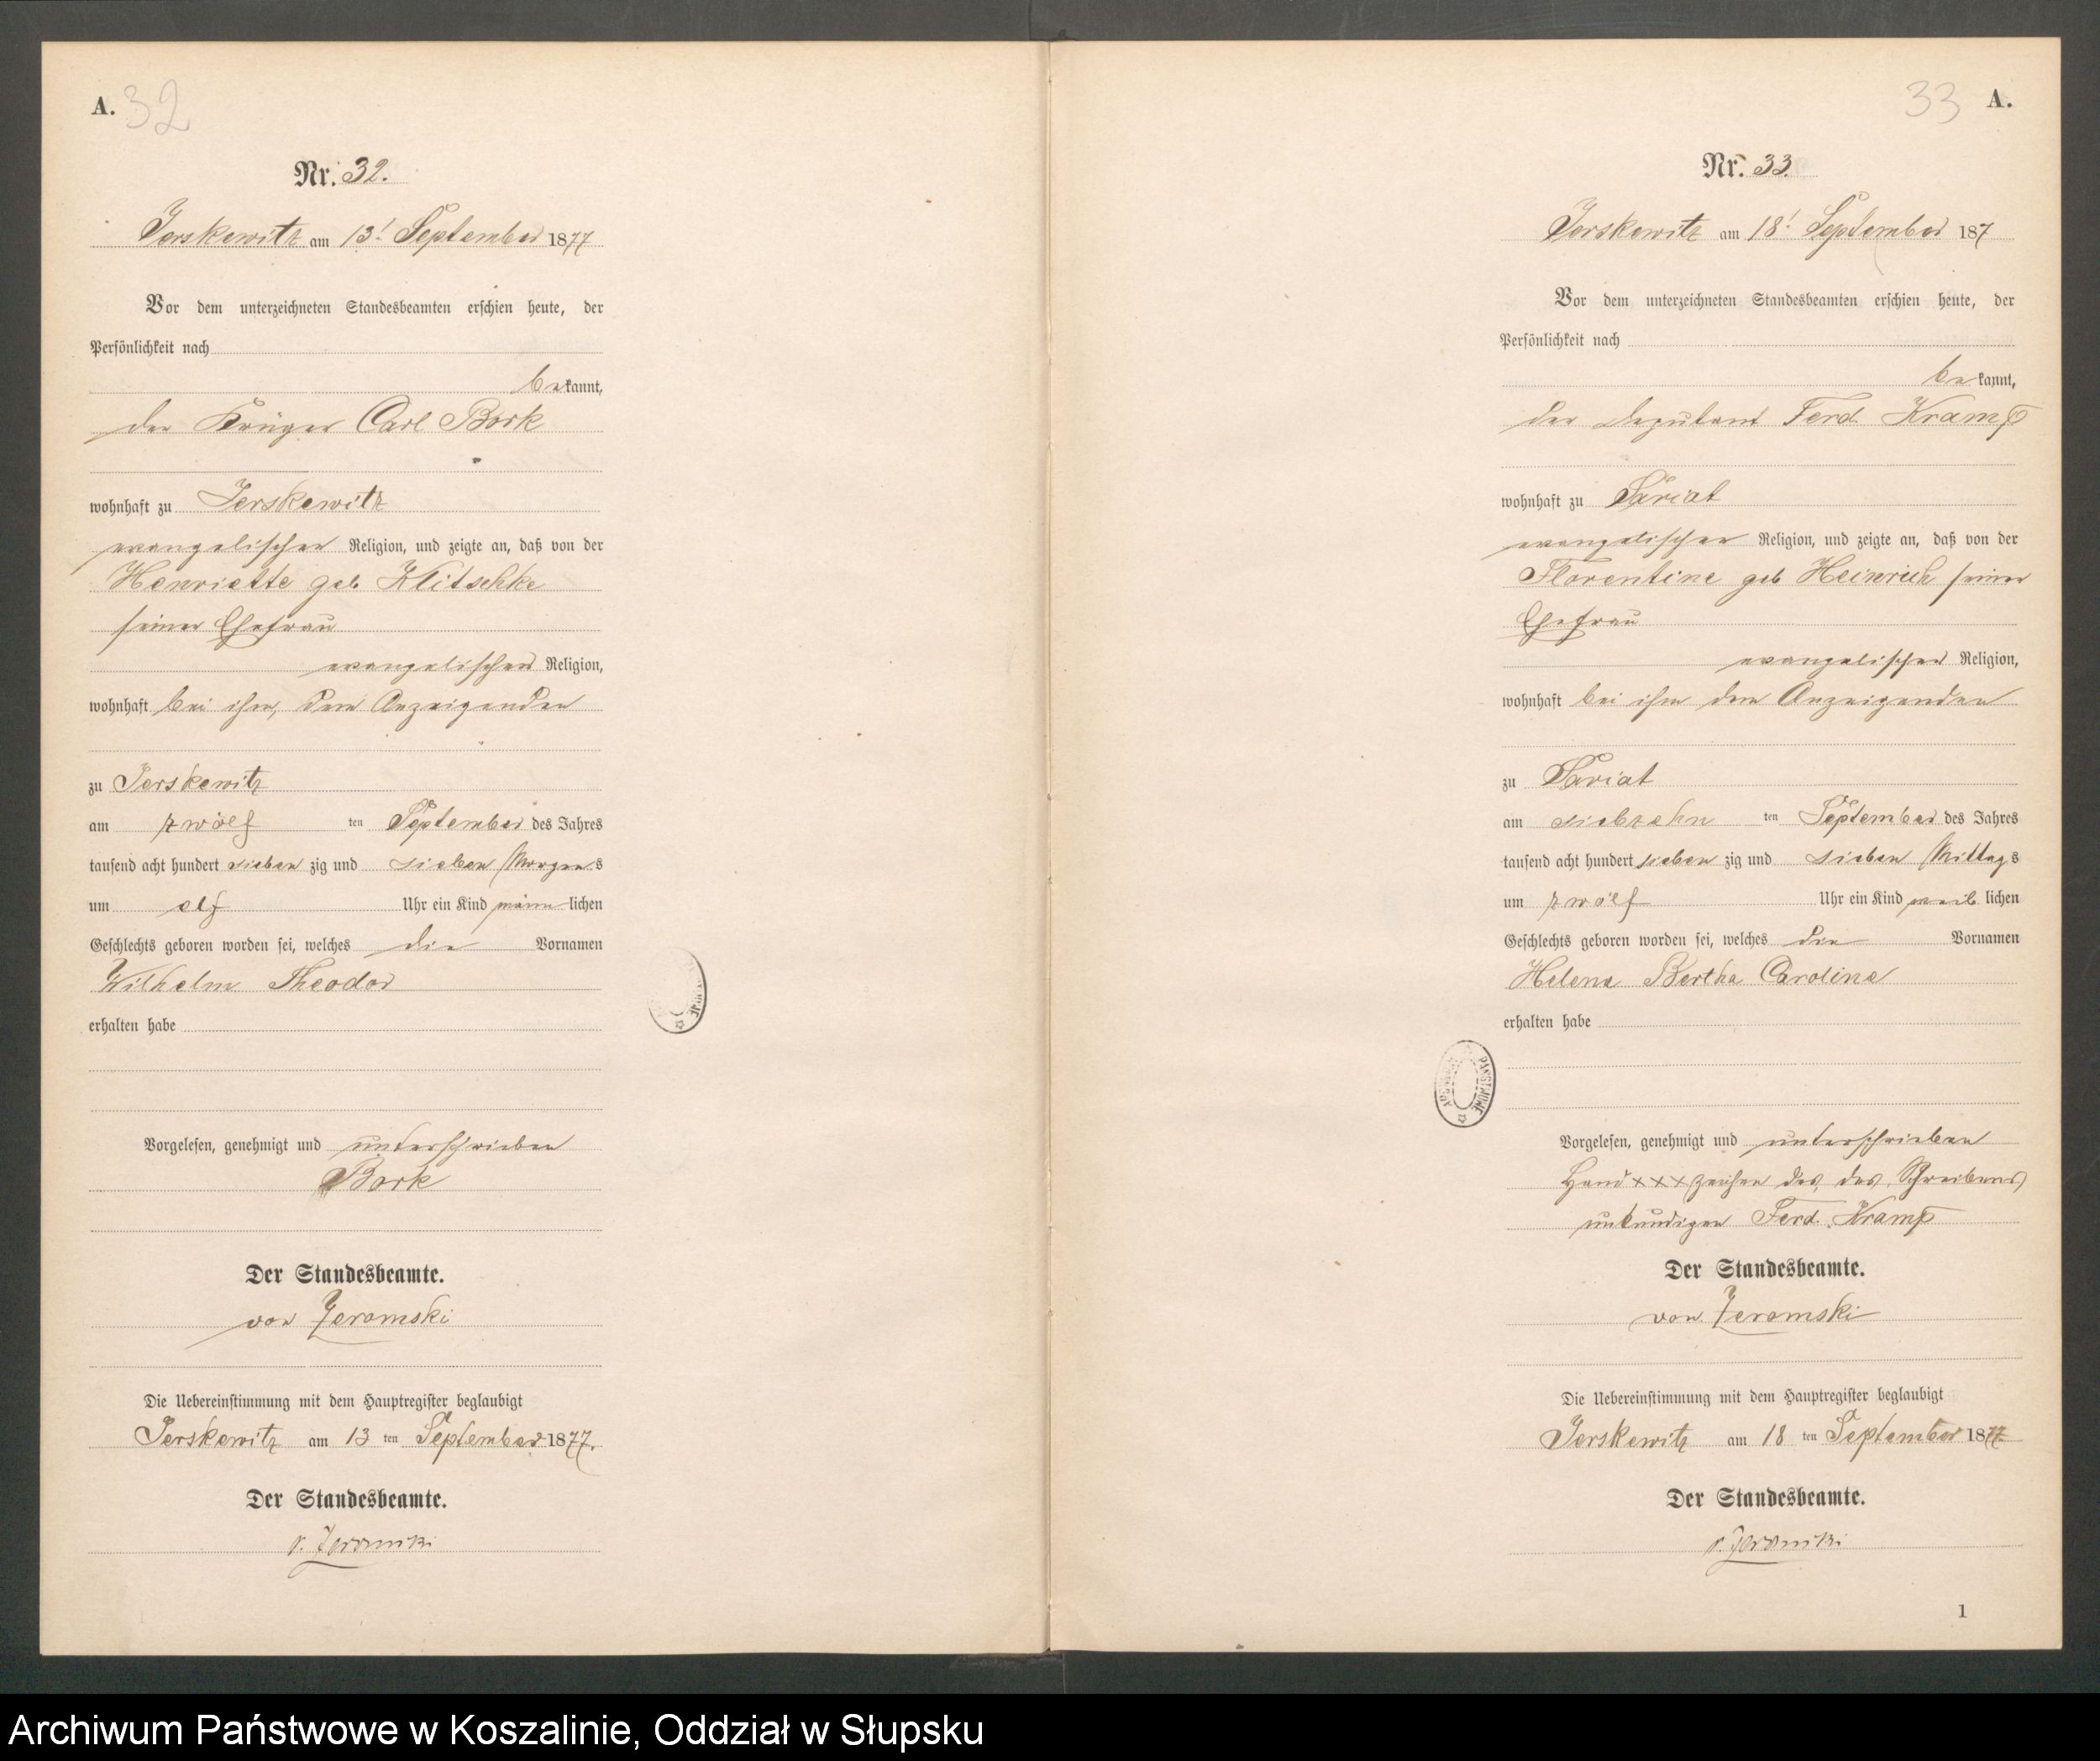 A. 32
Nr. 32.
Jerskewitz am 13t September 1877
Vor dem unterzeichneten Standesbeamten erschien heute, der
Persönlichkeit nach
bekannt,
der Krüger Carl Bork
wohnhaft zu Jerskewitz
evangelischer Religion, und zeigte an, daß von der
Henriette geb Klitschke
seiner Ehefrau
evangelischer Religion,
wohnhaft bei ihm, dem Anzeigenden
zu Jerskewitz
am zwölf ten September des Jahres
tausend acht hundert sieben zig und sieben Morgens
um elf Uhr ein Kind männlichen
Geschlechts geboren worden sei, welches die Vornamen
Wilhelm Theodor
erhalten habe
Vorgelesen, genehmigt und unterschrieben
Bork
Der Standesbeamte.
von Zeromski
Die Uebereinstimmung mit dem Hauptregister beglaubigt
Jerskewitz am 13 ten September 1877.
Der Standesbeamte.
v. Zeromski
33 A.
Nr. 33.
Jerskewitz am 18t September 187
Vor dem unterzeichneten Standesbeamten erschien heute, der
Persönlichkeit nach
bekannt,
der Deputant Ferd. Kramp
wohnhaft zu
evangelischer Religion, und zeigte an, daß von der
Florentine geb Heinrich seiner
Ehefrau
evangelischer Religion,
wohnhaft bei ihm dem Anzeigenden
zu
am siebzehn ten September des Jahres
tausend acht hundert sieben zig und sieben Mittags
um zwölf Uhr ein Kind weiblichen
Geschlechts geboren worden sei, welches die Vornamen
Helene Bertha Caroline
erhalten habe
PAŃSTWOWE
Vorgelesen, genehmigt und unterschrieben
Hand xxx zeichen des, des Schreibens
unkundigen Ferd. Kramp
Der Standesbeamte.
von Zeromski
Die Uebereinstimmung mit dem Hauptregister beglaubigt
Jerskewitz am 18 ten September 1877
Der Standesbeamte.
v. Zeromski
1
Archiwum Państwowe w Koszalinie, Oddział w Słupsku